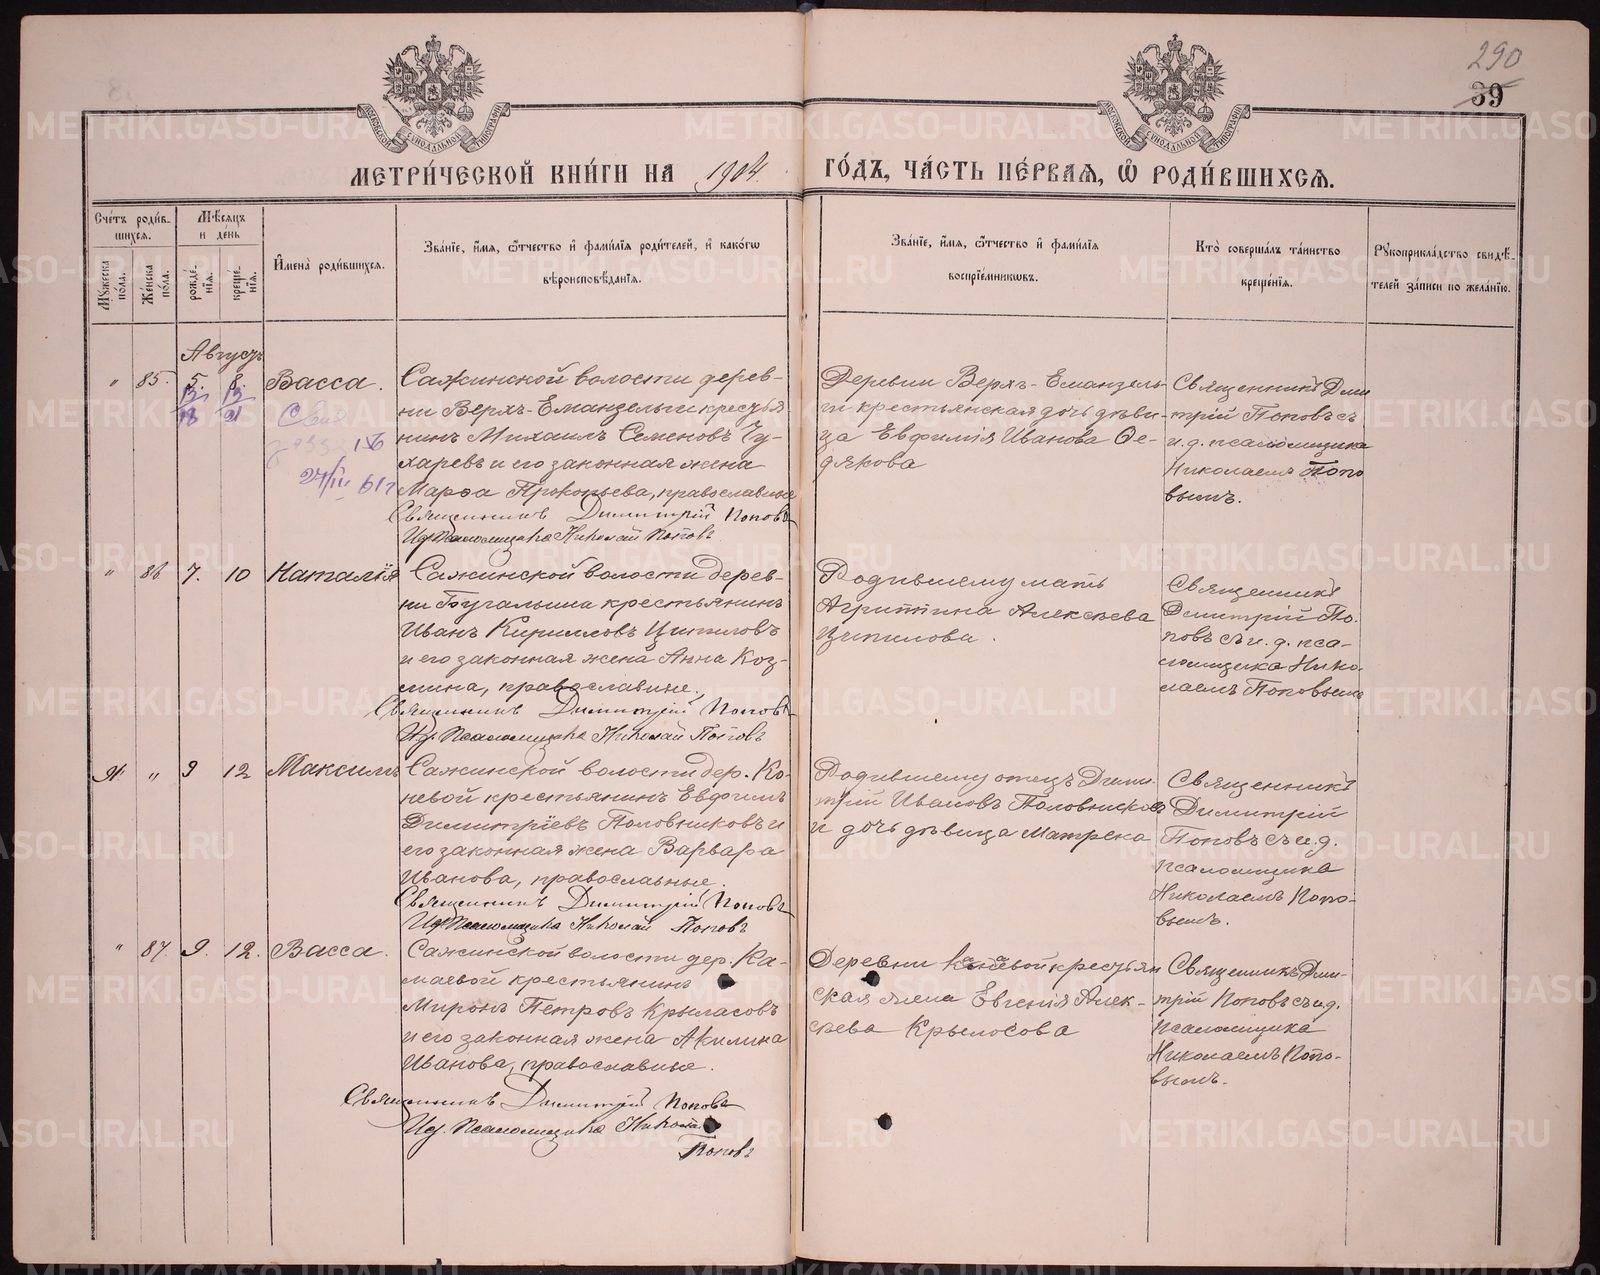 290
39
МЕТРИ́ЧЕСКОЙ КНИ́ГИ НА 1904. ГО́ДЪ, ЧА́СТЬ ПЕ́РВАЯ, Ѡ҆ РОДИ́ВШИХСЯ.
Сче́тъ роди́в-
шихся.
Мѣ́сяцъ
и де́нь
Мꙋ́жеска
по́ла.
Же́нска
по́ла.
рожде́-
нїя.
креще́-
нїя.
И҆мена̀ роди́вшихся.
Зва́нїе, и҆́мя, ѻ҆́тчество и҆ фами́лїя роди́телей, и҆ како́гѡ
вѣроисповѣ́данїя.
Зва́нїе, и҆́мя, ѻ҆́тчество и҆ фами́лїя
воспрїе́мникѡвъ.
Кто̀ соверша́лъ та́инство
креще́нїя.
Рꙋкоприкла́дство свидѣ́-
телей за́писи по жела́нїю.
Августъ
" 85. 5. 8. Васса.
Сажинской волости дерев-
ни Верхъ-Еманзельги крестья-
нинъ Михаилъ Семеновъ Чу-
харевъ и его законная жена
Марѳа Прокопьева, православные
Священникъ Димитрій Поповъ
И.д. Псаломщика Николай Поповъ
Деревни Верхъ-Еманзель-
ги крестьянская дочь дѣви-
ца Евфимія Иванова Ѳе-
дякова
Священникъ Дми-
трій Поповъ съ
и.д. псаломщика
Николаемъ Попо-
вымъ.
24/IV 61 г
" 86 7. 10 Наталія
Сажинской волости дерев-
ни Бугалыша крестьянинъ
Иванъ Кирилловъ Ципиловъ
и его законная жена Анна Коз-
мина, православные.
Священникъ Димитрій Поповъ
И.д. Псаломщика Николай Поповъ
Родившему мать
Агриппина Алексѣева
Ципилова.
Священникъ
Димитрій По-
повъ съ и.д. пса-
ломщика Нико-
лаемъ Поповымъ
" 9 12 Максимъ
Сажинской волости дер. Ко-
невой крестьянинъ Евфимъ
Димитріевъ Половниковъ и
его законная жена Варвара
Иванова, православные.
Священникъ Димитрій Поповъ
И.д. Псаломщика Николай Поповъ
Родившему отецъ Дими-
трій Ивановъ Половниковъ
и дочь дѣвица Матрена
Священникъ
Димитрій
Поповъ съ и.д.
псаломщика
Николаемъ Попо-
вымъ.
" 87. 9. 12. Васса.
Сажинской волости дер. Ка-
маевой крестьянинъ
Миронъ Петровъ Крыласовъ
и его законная жена Акилина
Иванова, православные.
Священникъ Димитрій Поповъ
И.д. Псаломщика Николай
Поповъ
Деревни Коневой крестьян
ская жена Евгенія Алек-
сѣева Крылосова
Священникъ Дми-
трій Поповъ съ и.д.
псаломщика
Николаемъ Попо-
вымъ.
METRIKI.GASO-URAL.RU